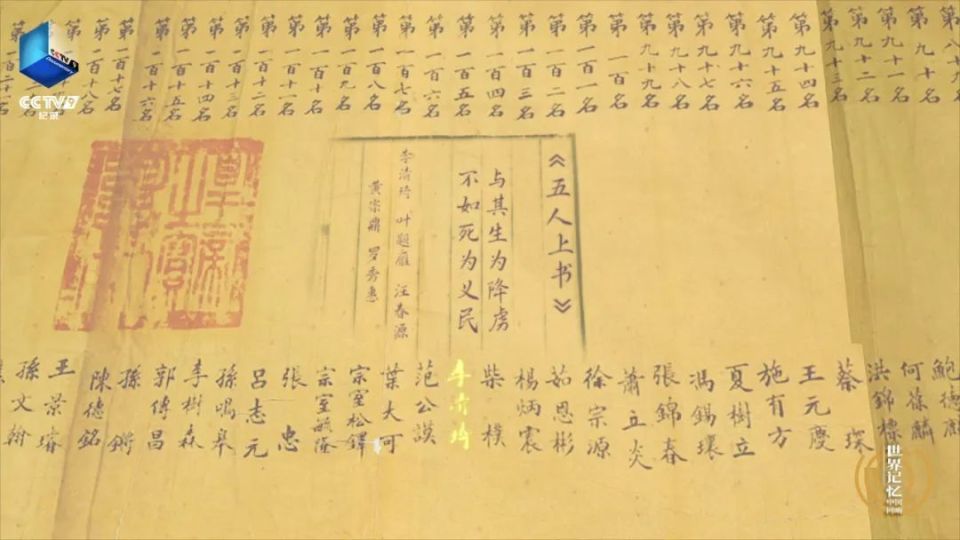 CCTV9
纪录
Documentary
第八十九名
第九十名
第九十一名
第九十二名
第九十三名
第九十四名
第九十五名
第九十六名
第九十七名
第九十八名
第九十九名
第一百名
第一百一名
第一百二名
第一百三名
第一百四名
第一百五名
第一百六名
第一百七名
第一百八名
第一百九名
第一百十名
第一百十一名
第一百十二名
第一百十三名
第一百十四名
第一百十五名
第一百十六名
第一百十七名
第一百十八名
第
第一百二十名
《五人上书》
与其生为降虏
不如死为义民
李清琦 叶题雁 汪春源
黄宗鼎 罗秀惠
鮑德
何葆麟
洪錦標
蔡琛
王元慶
施有方
夏樹立
馮錫瓌
張錦春
蕭立炎
徐宗源
茹恩彬
楊炳震
柴樸
李清琦
范公謨
葉大可
宗室松鐸
宗室毓隆
張忠
呂志元
孫鳴皋
李樹森
郭傳昌
孫鏘
陳德銘
王景
孫文翰
世界记忆
中国